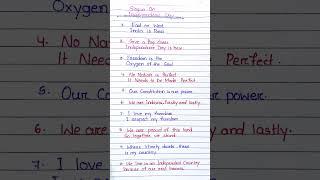 Slogan On
Independence Day
1. East or West
India is Best
2. Give a Big Cheer
Independence Day is here.
3. Freedom is the
Oxygen of the Soul
4. No Nation is Perfect
It Needs to be Made Perfect.
5. Our Constitution is our power.
6. We are Indians, firstly and lastly.
7. I love my freedom
I respect my freedom
8. We are proud of this land
So together we stand
9. Where liberty dwells, there
is my country.
We live in an Independent Country
Because of our real heroes.
Oxygen
4. No Na
It Need
5. Our Con
6. We are
7. I love
Perfect.
power.
and lastly.